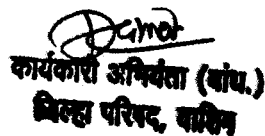 कार्यकारी अभियंता (बांध.)
जिल्हा परिषद, वाशिम